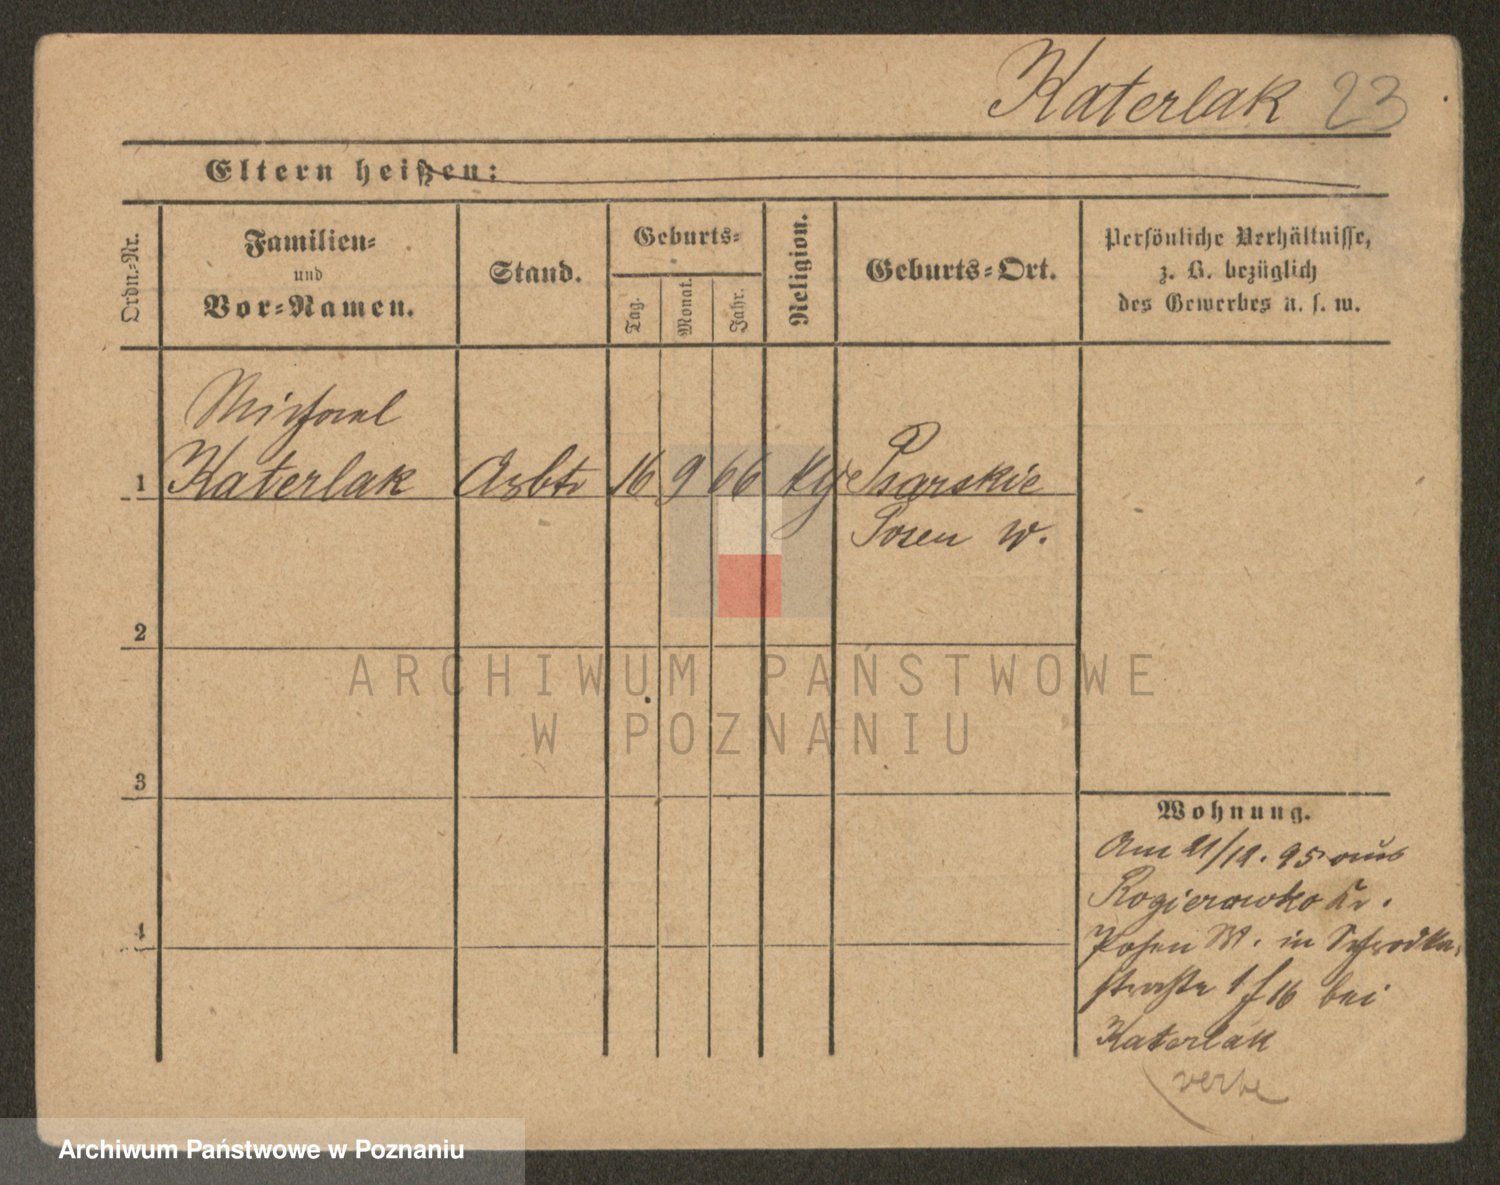 Katerlak 23
Eltern heißen:
Ordn.-Nr.
Familien-
und
Vor-Namen.
Stand.
Geburts-
Tag.
Monat.
Jahr.
Religion.
Geburts-Ort.
Persönliche Verhältnisse,
z. B. bezüglich
des Gewerbes u. s. w.
Michael
1 Katerlak Arbtr 16 9 66 Psarskie
Posen W.
2
3
4
Wohnung.
Am 21/12. 95 aus
Rogierowko Kr.
Posen W. in Schrodka-
straße bei
Katerlak
ARCHIWUM PAŃSTWOWE
W POZNANIU
Archiwum Państwowe w Poznaniu